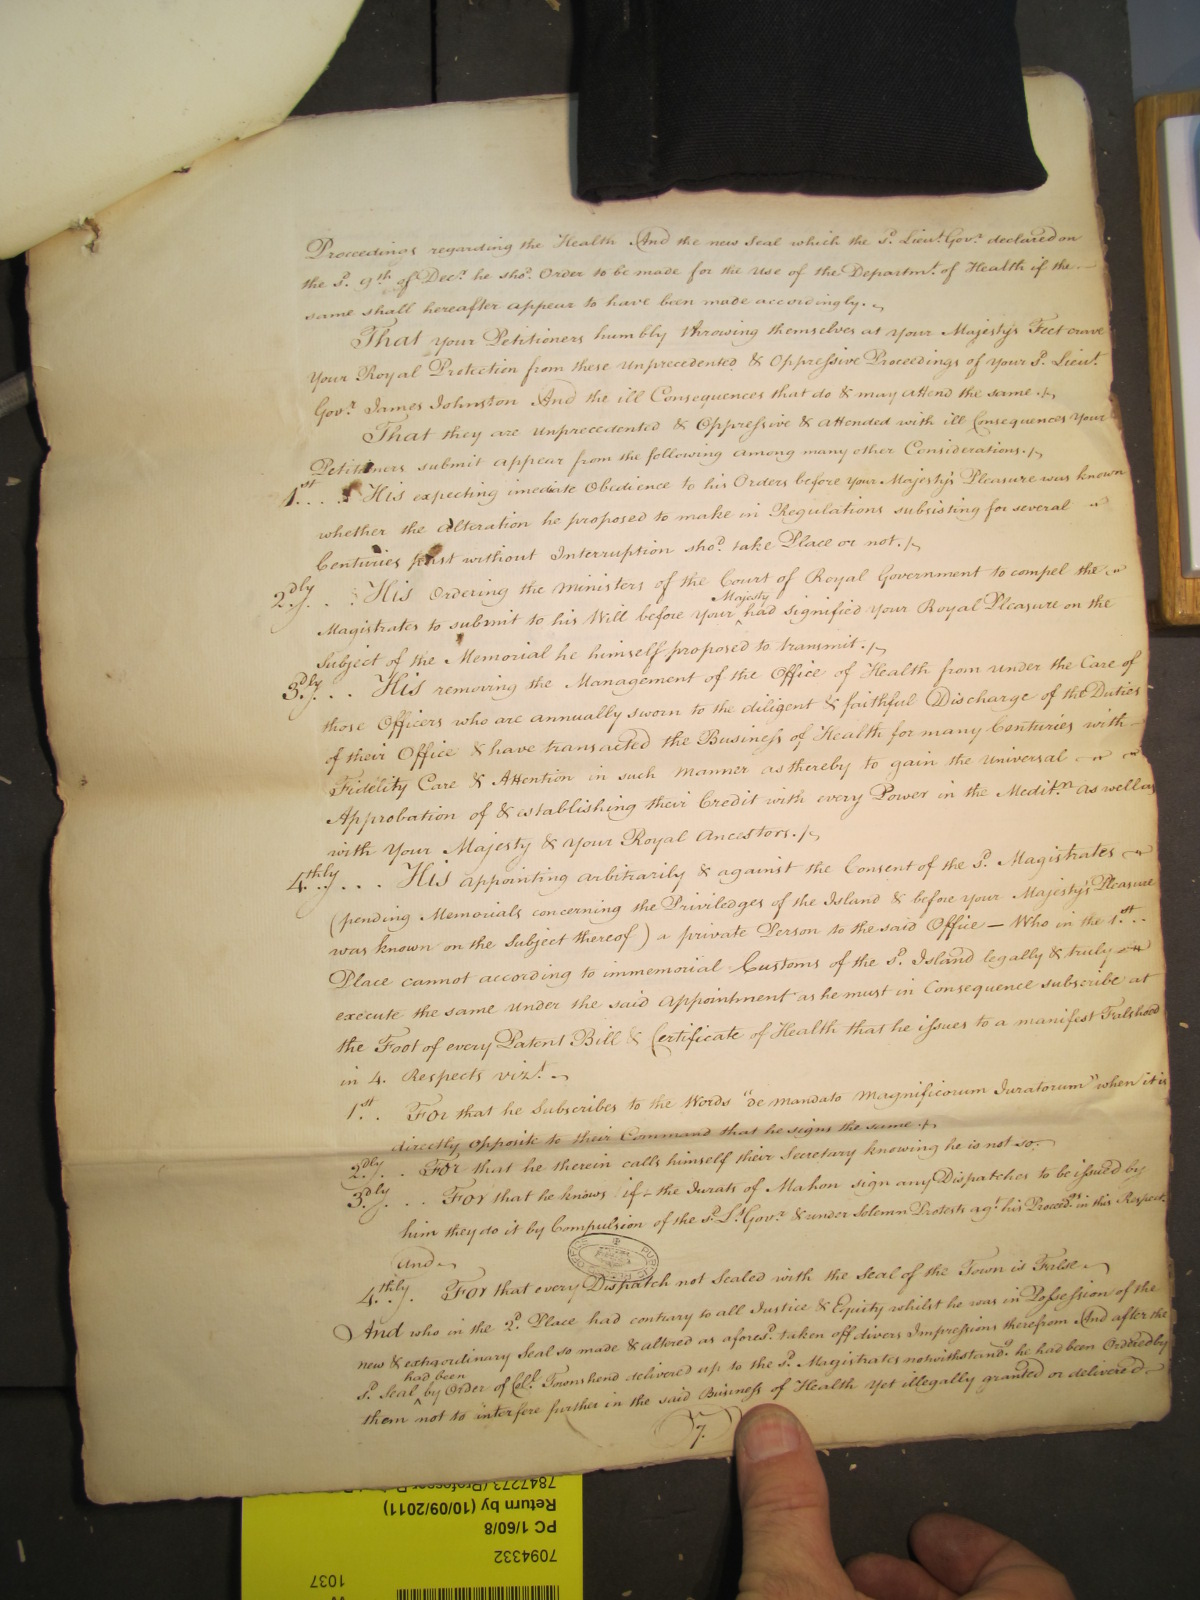 Proceedings regarding the Health And the new Seal which the sd. Lieut. Govr. declared on
the sd. 9th of Decr. he shod. Order to be made for the Use of the Departmt. of Health if the
same shall hereafter appear to have been made accordingly.
That your Petitioners humbly throwing themselves at your Majesty's Feet crave
Your Royal Protection from these unprecedented & Oppressive Proceedings of your sd. Lieut.
Govr. James Johnston And the ill Consequences that do & may attend the same.
That they are unprecedented & Oppressive & attended with ill Consequences Your
Petitioners submit appear from the following among many other Considerations.
1st... His expecting imediate Obedience to his Orders before your Majesty's Pleasure was known
whether the alteration he proposed to make in Regulations subsisting for several
Centuries past without Interruption shod. take Place or not.
2dly... His ordering the Ministers of the Court of Royal Government to compel the
Majesty
Magistrates to submit to his Will before your ^ had signified your Royal Pleasure on the
subject of the Memorial he himself proposed to transmit.
3dly... His removing the Management of the Office of Health from under the Care of
those Officers who are annually sworn to the diligent & faithful Discharge of the Duties
of their Office & have transacted the Business of Health for many Centuries with
Fidelity Care & Attention in such manner as thereby to gain the universal
Approbation of & establishing their Credit with every Power in the Meditn. as well as
with Your Majesty & Your Royal Ancestors.
4thly... His appointing arbitrarily & against the Consent of the sd. Magistrates
(pending Memorials concerning the Priviledges of the Island & before your Majesty's Pleasure
was known on the Subject thereof) a private Person to the said Office — Who in the 1st..
Place cannot according to immemorial Customs of the sd. Island legally & truly
execute the same under the said appointment as he must in Consequence subscribe at
the Foot of every Patent Bill & Certificate of Health that he issues to a manifest Falshood
in 4. Respects vizt.
1st.. For that he Subscribes to the Words "de mandato Magnificorum Juratorum" when it is
directly opposite to their Command that he signs the same.
2dly.. For that he therein calls himself their Secretary knowing he is not so.
3dly... For that he knows if the Jurats of Mahon sign any Dispatches to be issued by
him they do it by Compulsion of the sd. Lt. Govr. & under Solemn Protests agt. his Proceedgs. in this Respect.
and
4thly. For that every Dispatch not Sealed with the Seal of the Town is False
And who in the 2d. Place had contrary to all Justice & Equity whilst he was in Possession of the
new & extraordinary Seal so made & altered as aforesd. taken off divers Impressions therefrom And after the
had been
sd. Seal ^ by Order of Coll. Townshend delivered up to the sd. Magistrates notwithstandg. he had been Ordered by
them not to interfere further in the said Business of Health yet illegally granted or delivered
7.
PC 1/60/8
Return by (10/09/2011)
7094332
1037